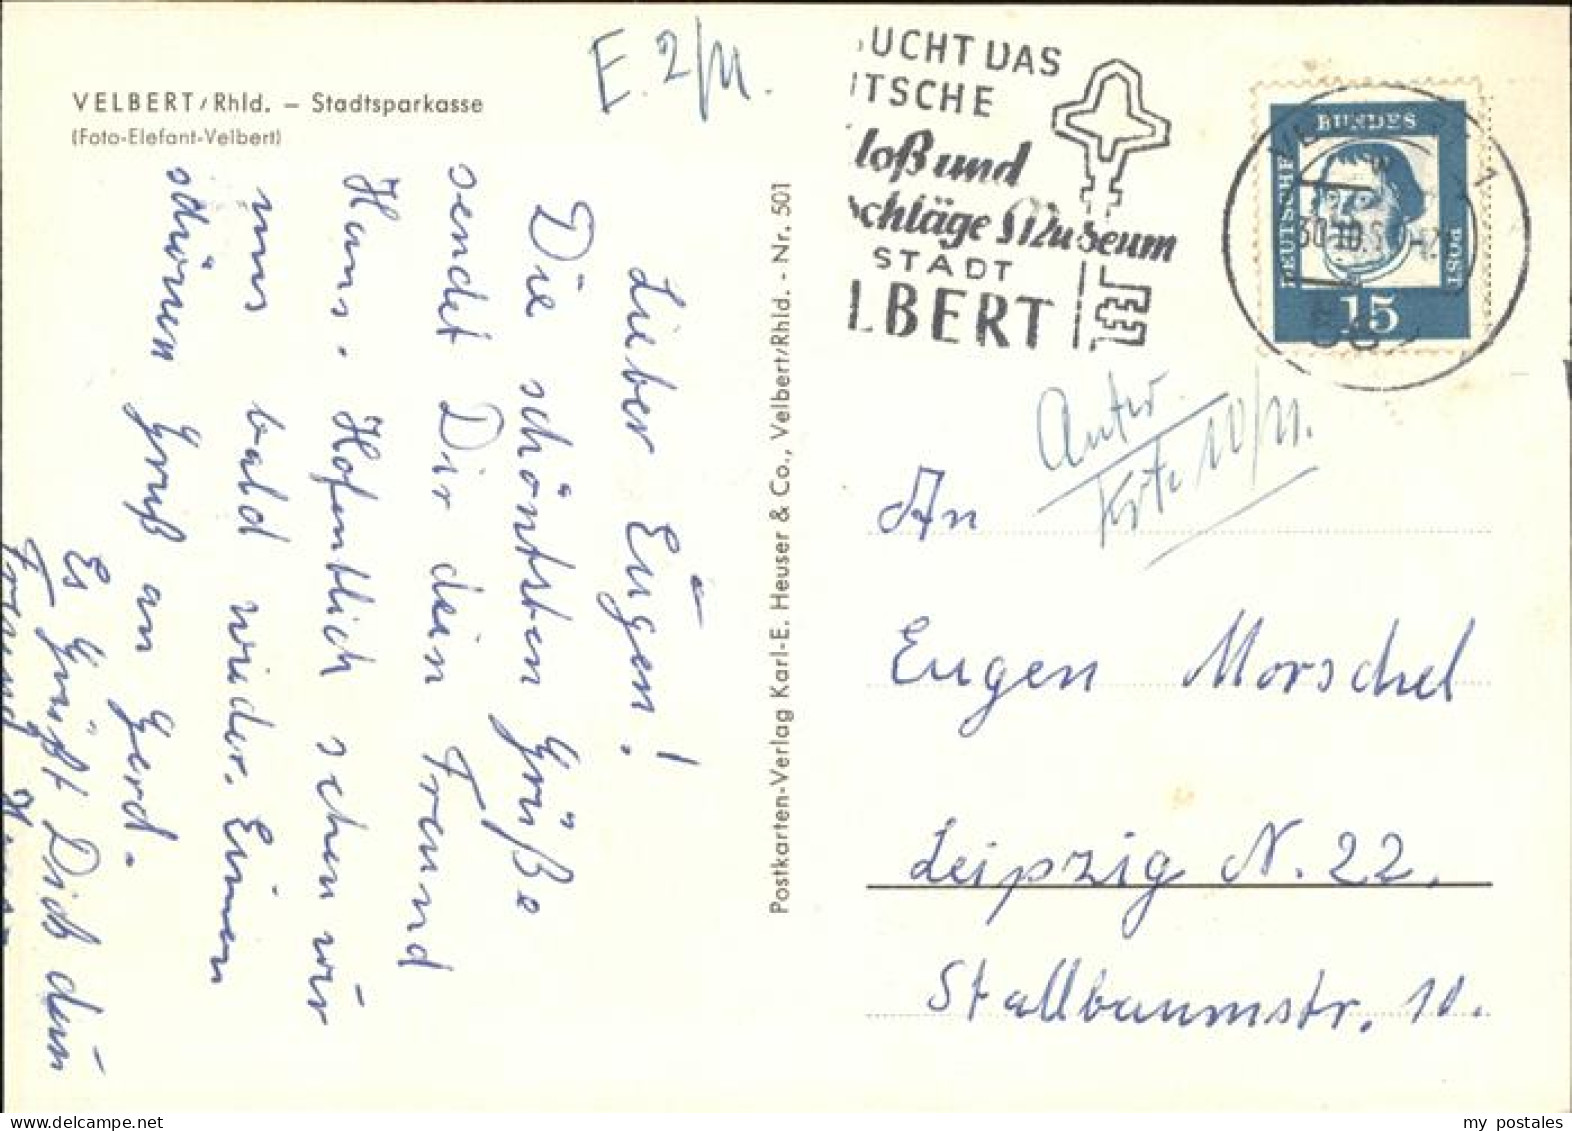 VELBERT/Rhld. – Stadtsparkasse
(Foto-Elefant-Velbert)
E. 2/11.
Lieber Eugen!
Die schöntsten Grüße
sendet Dir dein Freund
Hans. Hofentlich sehen wir
uns bald wieder. Einen
schönen Gruß an Gerd.
Es Grüßt Dich dein
Freund Hans
Postkarten-Verlag Karl-E. Heuser & Co., Velbert/Rhld. - Nr. 501
UCHT DAS
TSCHE
loß und
schläge Museum
STADT
LBERT
DEUTSCHE
BUNDES
POST
15
30.10.
Antw.
Krt. 10/11.
An
Eugen Morschel
Leipzig N. 22.
Stallbaumstr. 10.
my postales